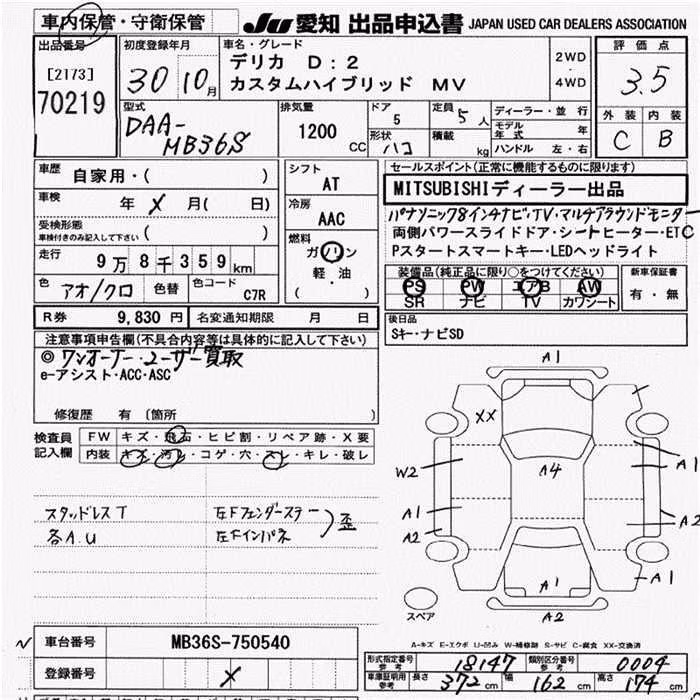 車内保管・守衛保管
JU 愛知 出品申込書 JAPAN USED CAR DEALERS ASSOCIATION
出品番号
[2173]
70219
初度登録年月
30 10月
車名・グレード
デリカ D：2
カスタムハイブリッド MV
2WD
・
4WD
評価点
3.5
外装 内装
C B
型式
DAA-
MB36S
排気量
1200
CC
ドア
5
形状
ハコ
定員
5人
積載
kg
ディーラー・並行
モデル年式 年
ハンドル 左・右
車歴
自家用・( )
車検
年 X 月( 日)
受検形態
車検付きのみ記入して下さい ( )
走行
9万8千359km
色
アオ/クロ
色替
色コード
C7R
シフト
AT
冷房
AAC
燃料
ガソリン
軽・油
( )
セールスポイント(正常に機能するものに限ります)
MITSUBISHIディーラー出品
パナソニック8インチナビ・TV・マルチアラウンドモニター
両側パワースライドドア・シートヒーター・ETC
Pスタートスマートキー・LEDヘッドライト
装備品(純正品に限り○をつけてください)
PS PW エアB AW
SR ナビ TV カワシート
新車保証書
有・無
R券 9,830円
名変通知期限 月 日
後日品
Sキー・ナビSD
注意事項申告欄(不具合内容等は具体的に記入して下さい)
◎ ワンオーナー・ユーザー買取
e-アシスト・ACC・ASC
修復歴 有 〔箇所 〕
検査員
記入欄
FW キズ・飛石・ヒビ割・リペア跡・X要
内装 キズ・汚レ・コゲ・穴・スレ・キレ・破レ
スタッドレスT
各A.U
左Fフェンダーステー
左Fインパネ
) 歪
A1
XX
W2
A4
A1
A1
A2
A2
A1
A1
スペア
A2
A-キズ E-エクボ U-凹み W-補修跡 S-サビ C-腐食 XX-交換済
車台番号 MB36S-750540
登録番号 X
形式指定番号
参考
18147
類別区分番号
参考
0004
車庫証明用
参考
長さ 372cm 幅 162cm 高さ 174cm